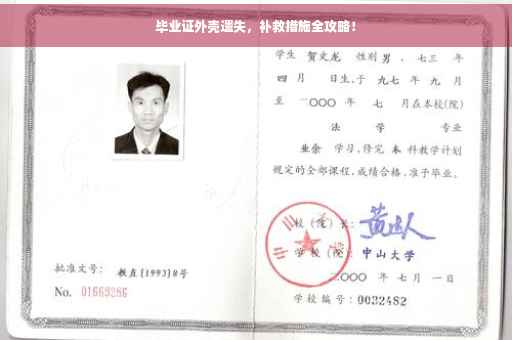 毕业证外壳遗失，补救措施全攻略！
学生 贺文龙 性别 男 、七三 年
四 月 日生,于 九七 年 九 月
至 二〇〇〇 年 七 月在本校(院)
法 学 专业
业余 学习,修完 本 科教学计划
规定的全部课程,成绩合格,准予毕业。
校（院）长：
学校（院）：中山大学
二〇〇〇 年 七 月 一 日
批准文号： 教直[1993]8号
No. 01669286
学校编号：0032482